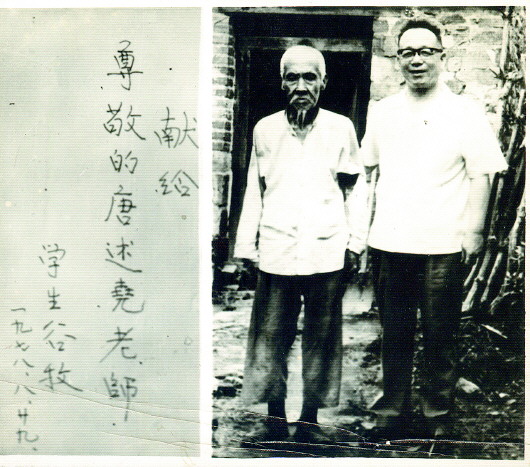 献给
尊敬的唐述堯老師.
学生谷牧
一九七八.八.廿九.